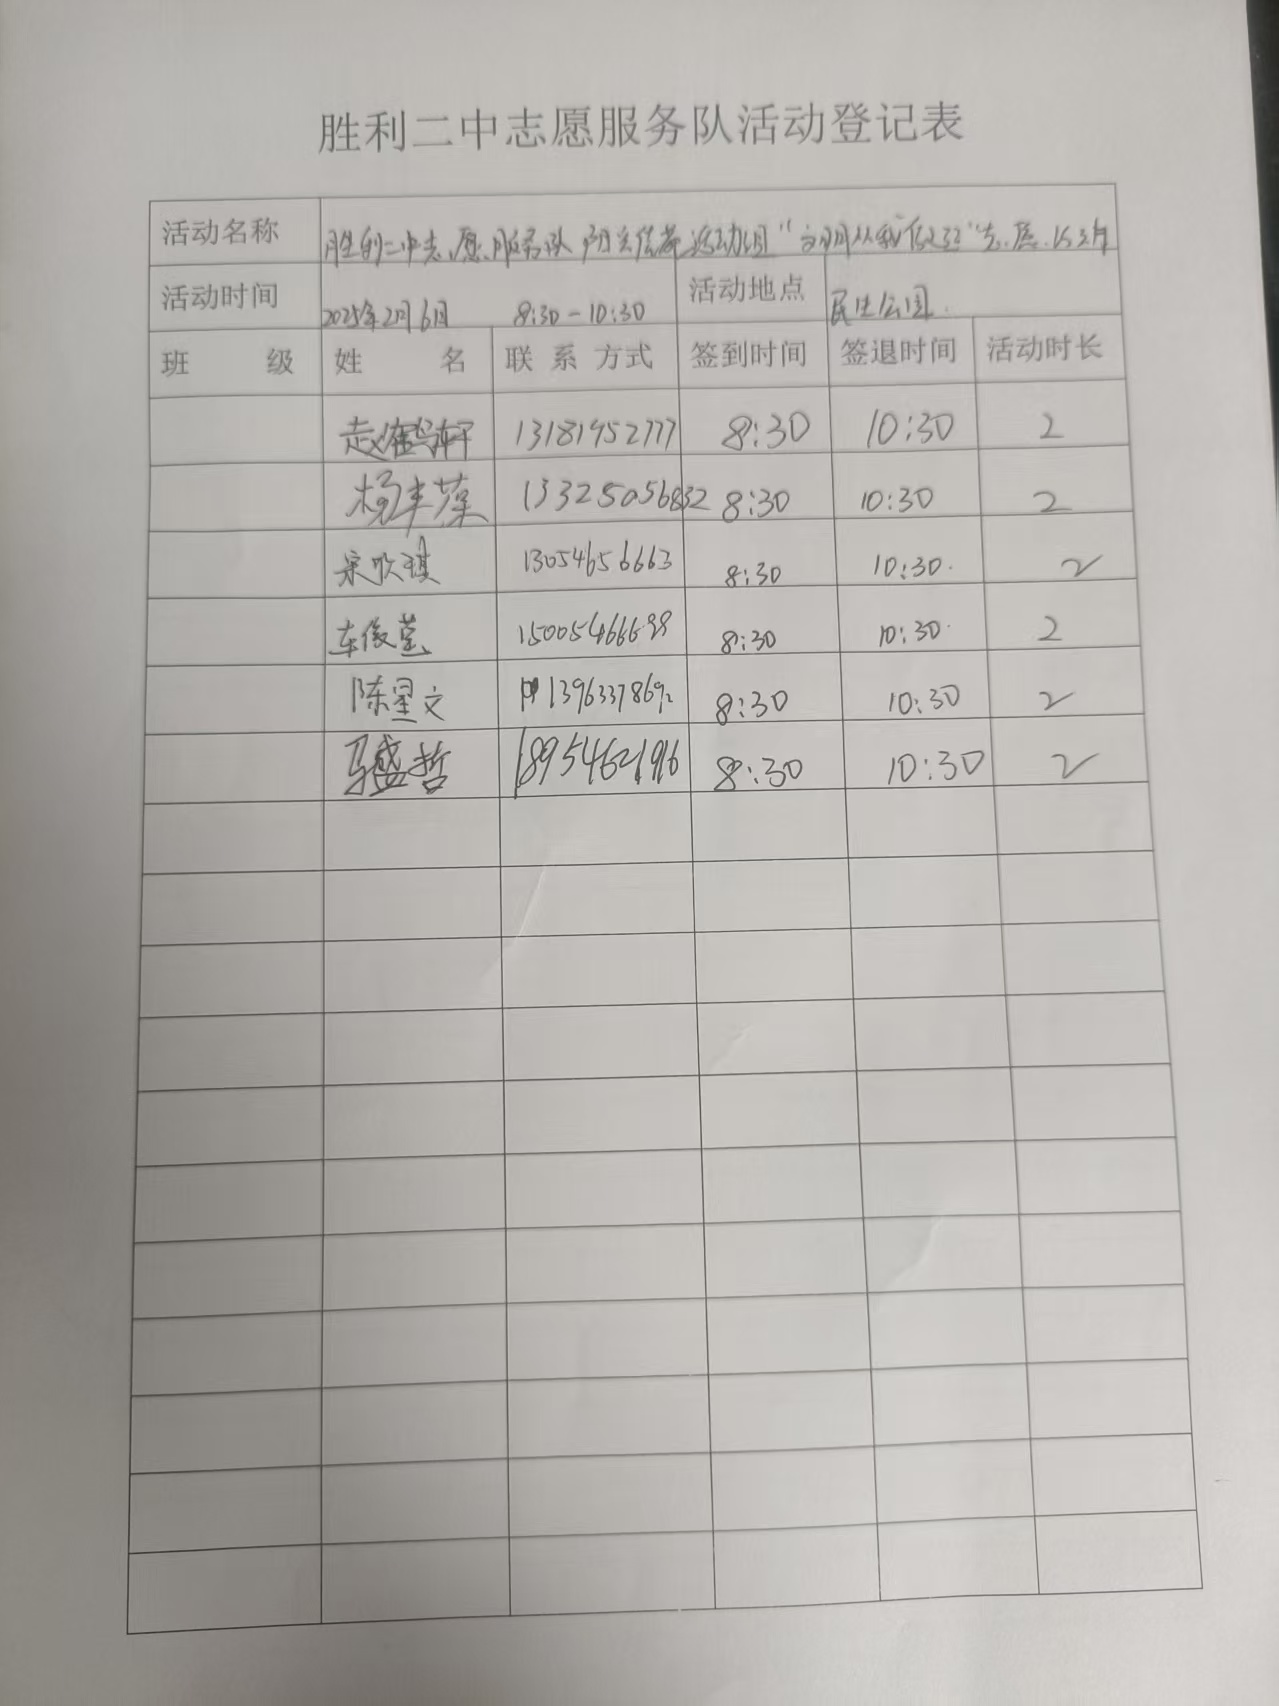 胜利二中志愿服务队活动登记表
活动名称 胜利二中志愿服务队 活动组"文明从我做起"志愿
活动时间 2025年2月6日 8:30-10:30 活动地点 民生公园
班级 姓名 联系方式 签到时间 签退时间 活动时长
赵 轩 13181952777 8:30 10:30 2
杨丰藻 13325056832 8:30 10:30 2
宋欣琪 13054656663 8:30 10:30 2
车俊莹 8:30 10:30 2
陈星文 13963378692 8:30 10:30 2
马盛哲 8:30 10:30 2